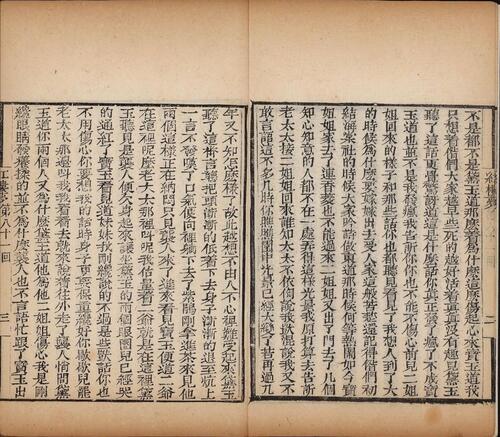 紅樓夢
二
不是都不是黛玉道那麼著為什麼這麼傷起心來寶玉道我
只想着偺們大家越早些死的越好活着真真沒有趣兒黛玉
聽了這話更覺驚訝道這是什麼話你真正發了瘋了不成寶
玉道也並不是我發瘋我告訴你你也不能不傷心前兒二姐
姐回來的樣子和那些話你也都聽見看見了我想人到了大
的時候為什麼要嫁嫁出去受人家這般苦楚還記得偺們初
結海棠社的時候大家吟詩做東道那時候何等熱鬧如今寶
姐姐家去了連香菱也不能過來二姐姐又出了門子了幾個
知心知意的人都不在一處弄得這樣光景我原打算去告訴
老太太接二姐姐回來誰知太太不依倒說我獃混說我又不
敢言語這不多幾時你瞧瞧園中光景已經大變了若再過幾
年又不知怎麼樣了故此越想不由人不心裡難受起來黛玉
聽了這番言語把頭漸漸的低了下去身子漸漸的退至炕上
一言不發嘆了口氣便向裡躺下去了紫鵑剛拿進茶來見他
兩個這樣正在納悶只見襲人來了進來看見寶玉便道二爺
在這裡呢麼老太太那裡叫呢我估量着二爺就是在這裡黛
玉聽見是襲人便欠身起來讓坐黛玉的兩個眼圈兒已經哭
的通紅了寶玉看見道妹妹我剛纔說的不過是些獃話你也
不用傷心你要想我的話時身子更要保重纔好你歇歇兒罷
老太太那邊叫我我看看去就來說着往外走了襲人悄問黛
玉道你兩個人又為什麼黛玉道他為他二姐姐傷心我是剛
纔眼睛發癢揉的並不為什麼襲人也不言語忙跟了寶玉出
紅樓夢第八十一回
三